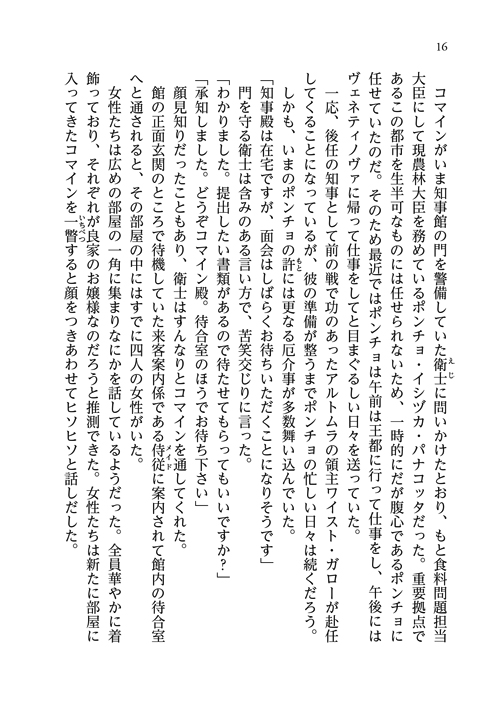 16
コマインがいま知事館の門を警備していた衛士に問いかけたとおり、もと食料問題担当
大臣にして現農林大臣を務めているポンチョ・イシヅカ・パナコッタだった。重要拠点で
あるこの都市を生半可なものには任せられないため、一時的にだが腹心であるポンチョに
任せていたのだ。そのため最近ではポンチョは午前は王都に行って仕事をし、午後には
ヴェネティノヴァに帰って仕事をしてと目まぐるしい日々を送っていた。
一応、後任の知事として前の戦で功のあったアルトムラの領主ワイスト・ガローが赴任
してくることになっているが、彼の準備が整うまでポンチョの忙しい日々は続くだろう。
しかも、いまのポンチョの許には更なる厄介事が多数舞い込んでいた。
「知事殿は在宅ですが、面会はしばらくお待ちいただくことになりそうです」
門を守る衛士は含みのある言い方で、苦笑交じりに言った。
「わかりました。提出したい書類があるので待たせてもらってもいいですか？」
「承知しました。どうぞコマイン殿。待合室のほうでお待ち下さい」
顔見知りだったこともあり、衛士はすんなりとコマインを通してくれた。
館の正面玄関のところで待機していた来客案内係である侍従に案内されて館内の待合室
へと通されると、その部屋の中にはすでに四人の女性がいた。
女性たちは広めの部屋の一角に集まりなにかを話しているようだった。全員華やかに着
飾っており、それぞれが良家のお嬢様なのだろうと推測できた。女性たちは新たに部屋に
入ってきたコマインを一瞥すると顔をつきあわせてヒソヒソと話しだした。
えじ
もと
メイド
いちべつ